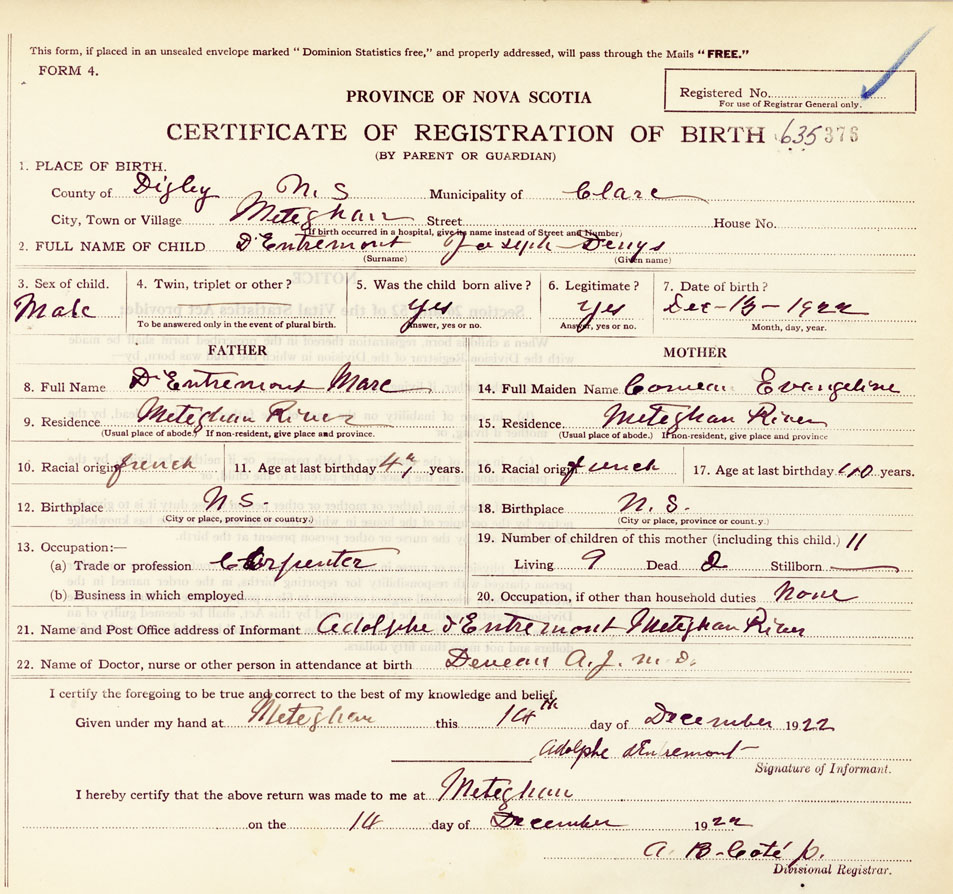 This form, if placed in an unsealed envelope marked "Dominion Statistics free," and properly addressed, will pass through the Mails "FREE."
FORM 4.
Registered No.
For use of Registrar General only.
PROVINCE OF NOVA SCOTIA
CERTIFICATE OF REGISTRATION OF BIRTH 635376
(BY PARENT OR GUARDIAN)
1. PLACE OF BIRTH.
County of Digby N.S Municipality of Clare
City, Town or Village Meteghan Street House No.
(If birth occurred in a hospital, give its name instead of Street and Number)
2. FULL NAME OF CHILD D'Entremont Joseph Denys
(Surname) (Given name)
3. Sex of child. 4. Twin, triplet or other? 5. Was the child born alive? 6. Legitimate? 7. Date of birth?
Male Yes Yes Dec-13-1922
To be answered only in the event of plural birth. Answer, yes or no. Answer, yes or no. Month, day, year.
FATHER MOTHER
8. Full Name D'Entremont Marc 14. Full Maiden Name Comeau Evangeline
9. Residence Meteghan River 15. Residence Meteghan River
(Usual place of abode.) If non-resident, give place and province. (Usual place of abode.) If non-resident, give place and province
10. Racial origin french 11. Age at last birthday 47 years. 16. Racial orig french 17. Age at last birthday 40 years.
12. Birthplace N S. 18. Birthplace N. S.
(City or place, province or country.) (City or place, province or count.y.)
13. Occupation:— 19. Number of children of this mother (including this child.) 11
(a) Trade or profession Carpenter Living 9 Dead 2 Stillborn
(b) Business in which employed 20. Occupation, if other than household duties None
21. Name and Post Office address of Informant Adolphe d'Entremont Meteghan River
22. Name of Doctor, nurse or other person in attendance at birth Deveau A. J. M. D.
I certify the foregoing to be true and correct to the best of my knowledge and belief.
Given under my hand at Meteghan this 14th day of December 1922
Adolphe d'Entremont
Signature of Informant.
I hereby certify that the above return was made to me at Meteghan
on the 14 day of December 1922
A. B. Coté
Divisional Registrar.